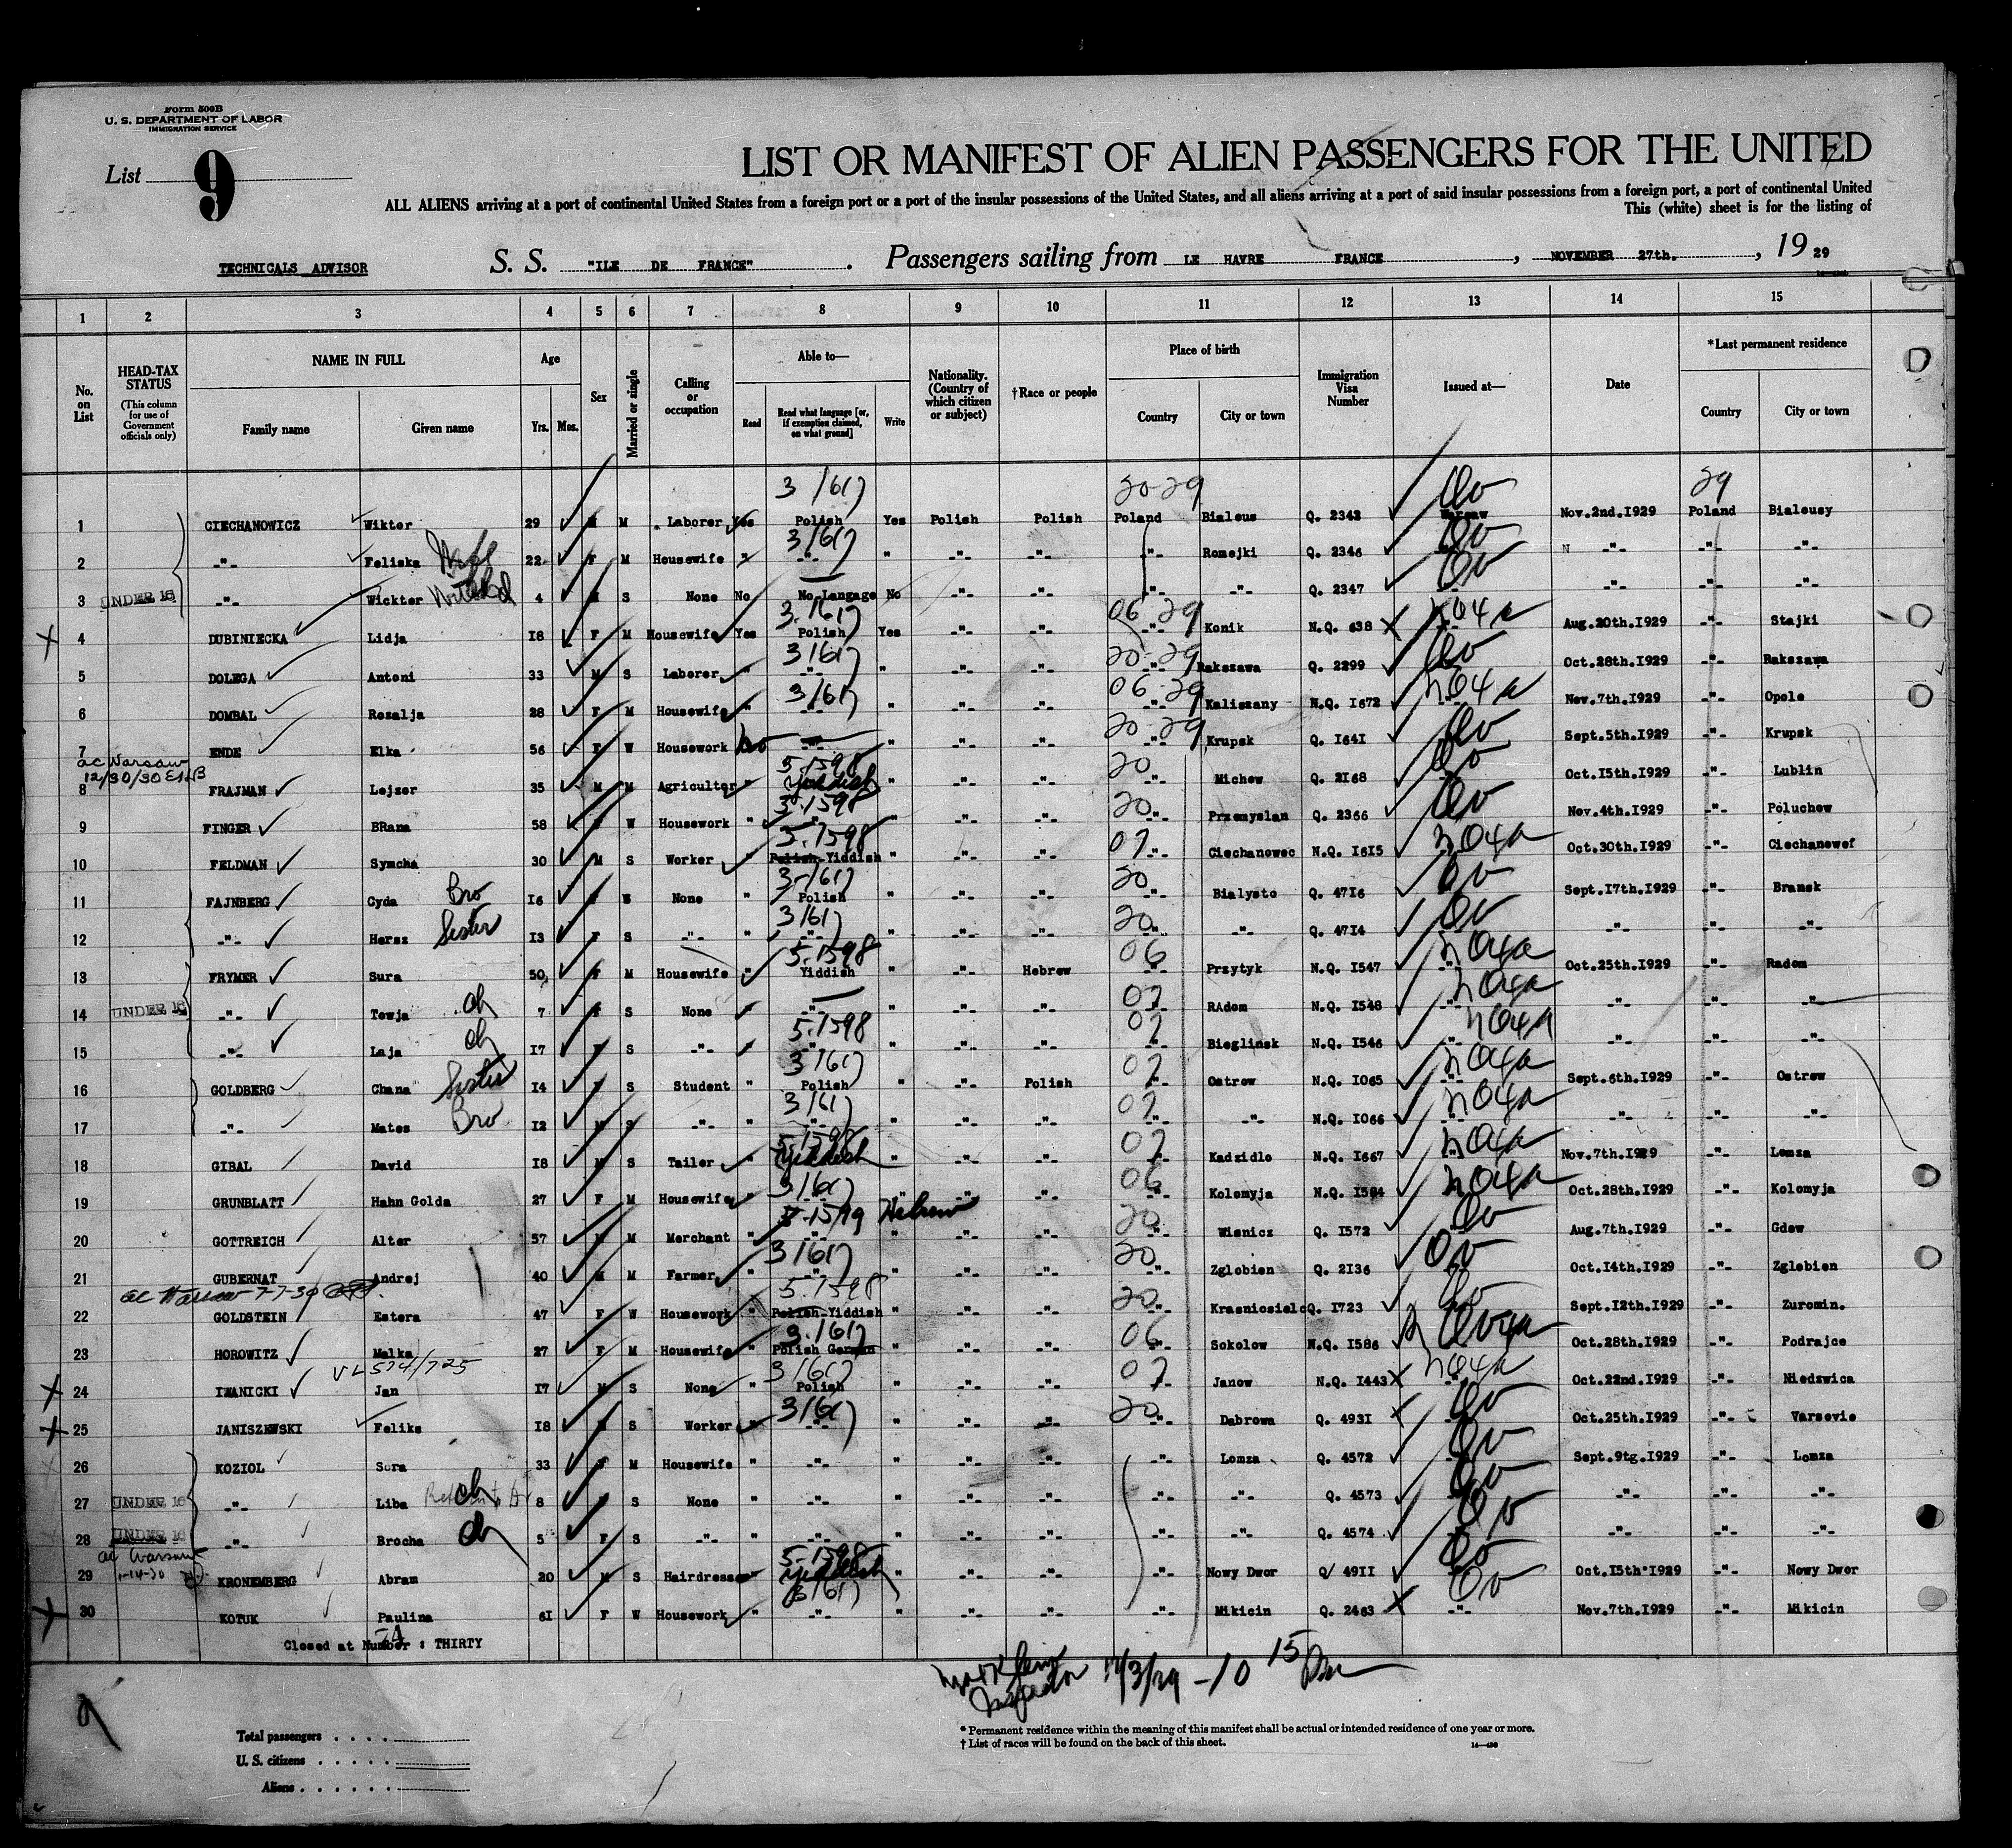 Form 500B
U. S. DEPARTMENT OF LABOR
IMMIGRATION SERVICE
List 9
LIST OR MANIFEST OF ALIEN PASSENGERS FOR THE UNITED
ALL ALIENS arriving at a port of continental United States from a foreign port or a port of the insular possessions of the United States, and all aliens arriving at a port of said insular possessions from a foreign port, a port of continental United
This (white) sheet is for the listing of
TECHNICALS ADVISOR S. S. "ILE DE FRANCE". Passengers sailing from LE HAVRE FRANCE, NOVEMBER 27th., 19 29
1 2 3 4 5 6 7 8 9 10 11 12 13 14 15
No. on List HEAD-TAX STATUS (This column for use of Government officials only) NAME IN FULL Family name Given name Age Yrs. Mos. Sex Married or single Calling or occupation Able to— Read Read what language [or, if exemption claimed, on what ground] Write Nationality. (Country of which citizen or subject) †Race or people Place of birth Country City or town Immigration Visa Number Issued at— Date *Last permanent residence Country City or town
3/617 20-29 Qv 29
1 CIECHANOWICZ Wikter 29 M M Laborer Yes Polish Yes Polish Polish Poland Bialeus Q. 2343 Warsaw Nov.2nd.1929 Poland Bialeusy
3/617 Qv
2 -"- Feliska Wife 22 F M Housewife " -"- " -"- -"- -"- Romejki Q. 2346 -"- -"- -"-
Qv
3 UNDER 16 -"- Wickter 4 M S None No No Langage No -"- -"- -"- -"- Q. 2347 -"- -"- -"-
3/617 06-29 n04a
4 DUBINIECKA Lidja 18 F M Housewife Yes Polish Yes -"- -"- -"- Konik N.Q. 638 Aug.20th.1929 -"- Stajki
3/617 20-29 Qv
5 DOLEGA Antoni 33 M S Laborer " -"- " -"- -"- -"- Rakszawa Q. 2299 Oct.28th.1929 -"- Rakszawa
3/617 06-29 n04a
6 DOMBAL Rozalja 28 F M Housewife " -"- " -"- -"- -"- Kaliszany N.Q. 1672 Nov.7th.1929 -"- Opole
20-29 Qv
7 ENDE Elka 56 F W Housework no -"- " -"- -"- -"- Krupsk Q. 1641 Sept.5th.1929 -"- Krupsk
ac Warsaw
12/30/30
5-1598 20 Qv
8 FRAJMAN Lejzer 35 M M Agricultor " Yiddish " -"- -"- -"- Michow Q. 2168 Oct.15th.1929 -"- Lublin
5-1598 20 Qv
9 FINGER BRana 58 F W Housework " " " -"- -"- -"- Przemyslan Q. 2366 Nov.4th.1929 -"- Poluchow
5-1598 07 n04a
10 FELDMAN Symcha 30 M S Worker " Polish-Yiddish " -"- -"- -"- Ciechanowec N.Q. 1615 Oct.30th.1929 -"- Ciechanowef
3-1617 20 Qv
11 FAJNBERG Cyda Bro 16 S None " Polish " -"- -"- -"- Bialysto Q. 4716 Sept.17th.1929 -"- Bransk
3/617 20 Qv
12 -"- Hersz Sister 13 F S -"- " -"- " -"- -"- -"- -"- Q. 4714 -"- -"- -"-
5-1598 06 n04a
13 FRYMER Sura 50 F M Housewife " Yiddish " -"- Hebrew -"- Przytyk N.Q. 1547 Oct.25th.1929 -"- Radom
07 n04a
14 UNDER 16 -"- Tewja ch 7 F S None " " " -"- -"- -"- RAdom N.Q. 1548 -"- -"- -"-
5-1598 07 n04a
15 -"- Laja ch 17 F S -"- " " " -"- -"- -"- Bieglinsk N.Q. 1546 -"- -"- -"-
3/617 07 n04a
16 GOLDBERG Chana Sister 14 F S Student " Polish " -"- Polish -"- Ostrow N.Q. 1065 Sept.6th.1929 -"- Ostrow
3/617 07 n04a
17 -"- Mates Bro 12 M S -"- " -"- " -"- -"- -"- -"- N.Q. 1066 -"- -"- -"-
5-1598 07 n04a
18 GIBAL David 18 M S Tailer " Yiddish " -"- -"- -"- Kadzidlo N.Q. 1667 Nov.7th.1929 -"- Lomza
3/617 06 n04a
19 GRUNBLATT Hahn Golda 27 F M Housewife " -"- " -"- -"- -"- Kolomyja N.Q. 1584 Oct.28th.1929 -"- Kolomyja
Hebrew 20 Qv
20 GOTTREICH Alter 57 M M Merchant " -"- " -"- -"- -"- Wisnicz Q. 1572 Aug.7th.1929 -"- Gdow
3/617 20 Qv
21 GUBERNAT Andrej 40 M M Farmer " -"- " -"- -"- -"- Zglobien Q. 2136 Oct.14th.1929 -"- Zglobien
ac Warsaw 7-7-30
5-1598 20 Qv
22 GOLDSTEIN Estera 47 F W Housework " Polish-Yiddish " -"- -"- -"- Krasniosielc Q. 1723 Sept.12th.1929 -"- Zuromin.
3.1617 06
23 HOROWITZ Malka 27 F M Housewife " Polish German " -"- -"- -"- Sokolow N.Q. 1586 Oct.28th.1929 -"- Podrajce
3/617 07 n04a
24 IWANICKI Jan 17 M S None " Polish " -"- -"- -"- Janow N.Q. 1443 Oct.22nd.1929 -"- Niedzwica
3/617 20 Qv
25 JANISZEWSKI Feliks 18 M S Worker " -"- " -"- -"- -"- Dabrowa Q. 4931 Oct.25th.1929 -"- Varsovie
Qv
26 KOZIOL Sora 33 F M Housewife " -"- " -"- -"- -"- Lomza Q. 4572 Sept.9tg.1929 -"- Lomza
Qv
27 UNDER 16 -"- Liba ch 8 F S None " -"- " -"- -"- -"- -"- Q. 4573 -"- -"- -"-
Qv
28 UNDER 16 -"- Brocha ch 5 F S -"- " -"- " -"- -"- -"- -"- Q. 4574 -"- -"- -"-
ac Warsaw
5-1598 Qv
29 KRONEMBERG Abram 20 M S Hairdresse " Yiddish " -"- -"- -"- Nowy Dwor Q/ 4911 Oct.15th 1929 -"- Nowy Dwor
3/617 Qv
30 KOTUK Paulina 61 F W Housework " -"- " -"- -"- -"- Mikicin Q. 2463 -"- Nov.7th.1929 -"- Mikicin
Closed at Number : THIRTY
Inspector 12/3/29 - 10 15
Total passengers
U. S. citizens
Aliens
* Permanent residence within the meaning of this manifest shall be actual or intended residence of one year or more.
† List of races will be found on the back of this sheet.